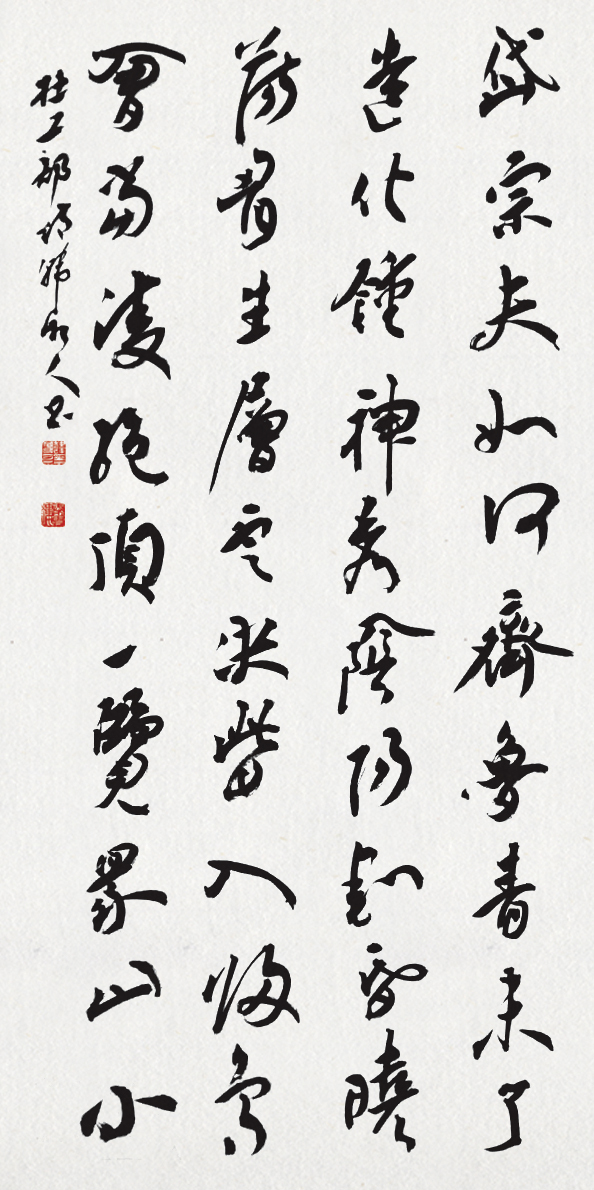 岱宗夫如何齊魯青未了
造化鍾神秀陰陽割昏曉
蕩胸生層雲決眥入歸鳥
會當凌絕頂一覽眾山小
杜工部詩人書